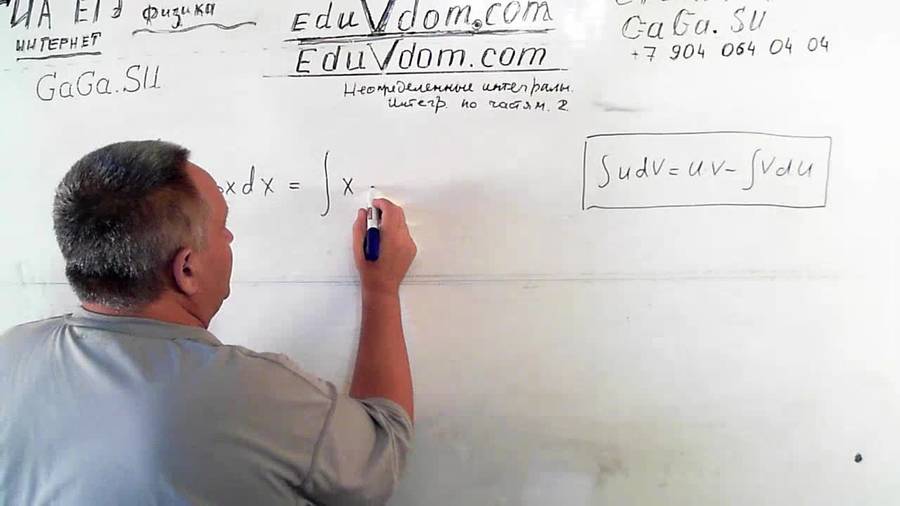 ИА ЕГЭ физика
ИНТЕРНЕТ
GaGa.SU
EduVdom.com
EduVdom.com
Неопределенные интегралы.
Интегр. по частям. 2
GaGa.SU
+7 904 064 04 04
xdx = ∫x
∫udV = uV - ∫Vdu